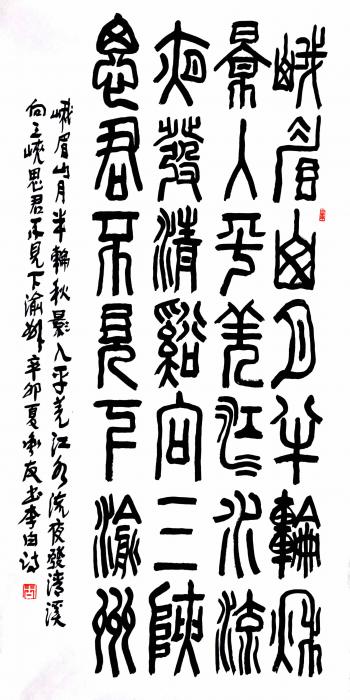 峨眉山月半輪秋
影入平羌江水流
夜發清谿向三峽
思君不見下渝州
峨眉山月半輪秋影入平羌江水流夜發清溪
向三峽思君不見下渝州辛卯夏 友書李白詩